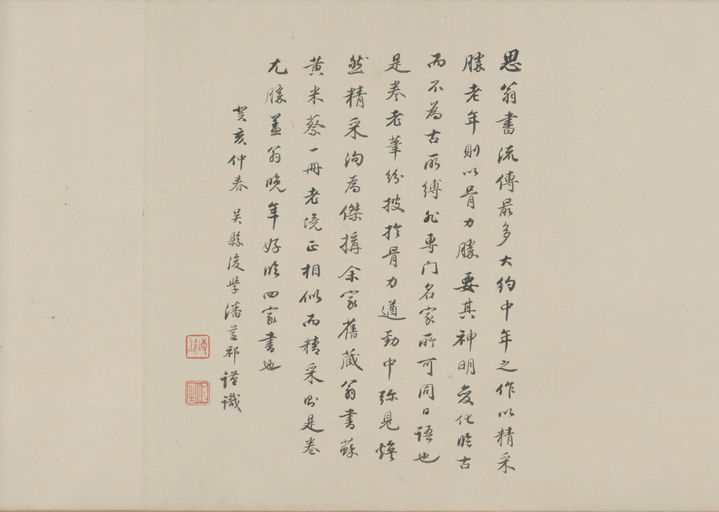 思翁書流傳最多大約中年之作以精采
勝老年則以骨力勝要其神明變化臨古
而不為古所縛非專门名家所可同日語也
是卷老筆紛披於骨力遒勁中弥見煥
然精采洵為傑搆余家舊藏翁書蘇
黃米蔡一冊老境正相似而精采則是卷
尤勝蓋翁晚年好臨四家書也
癸亥仲春 吳縣後學潘祁謹識